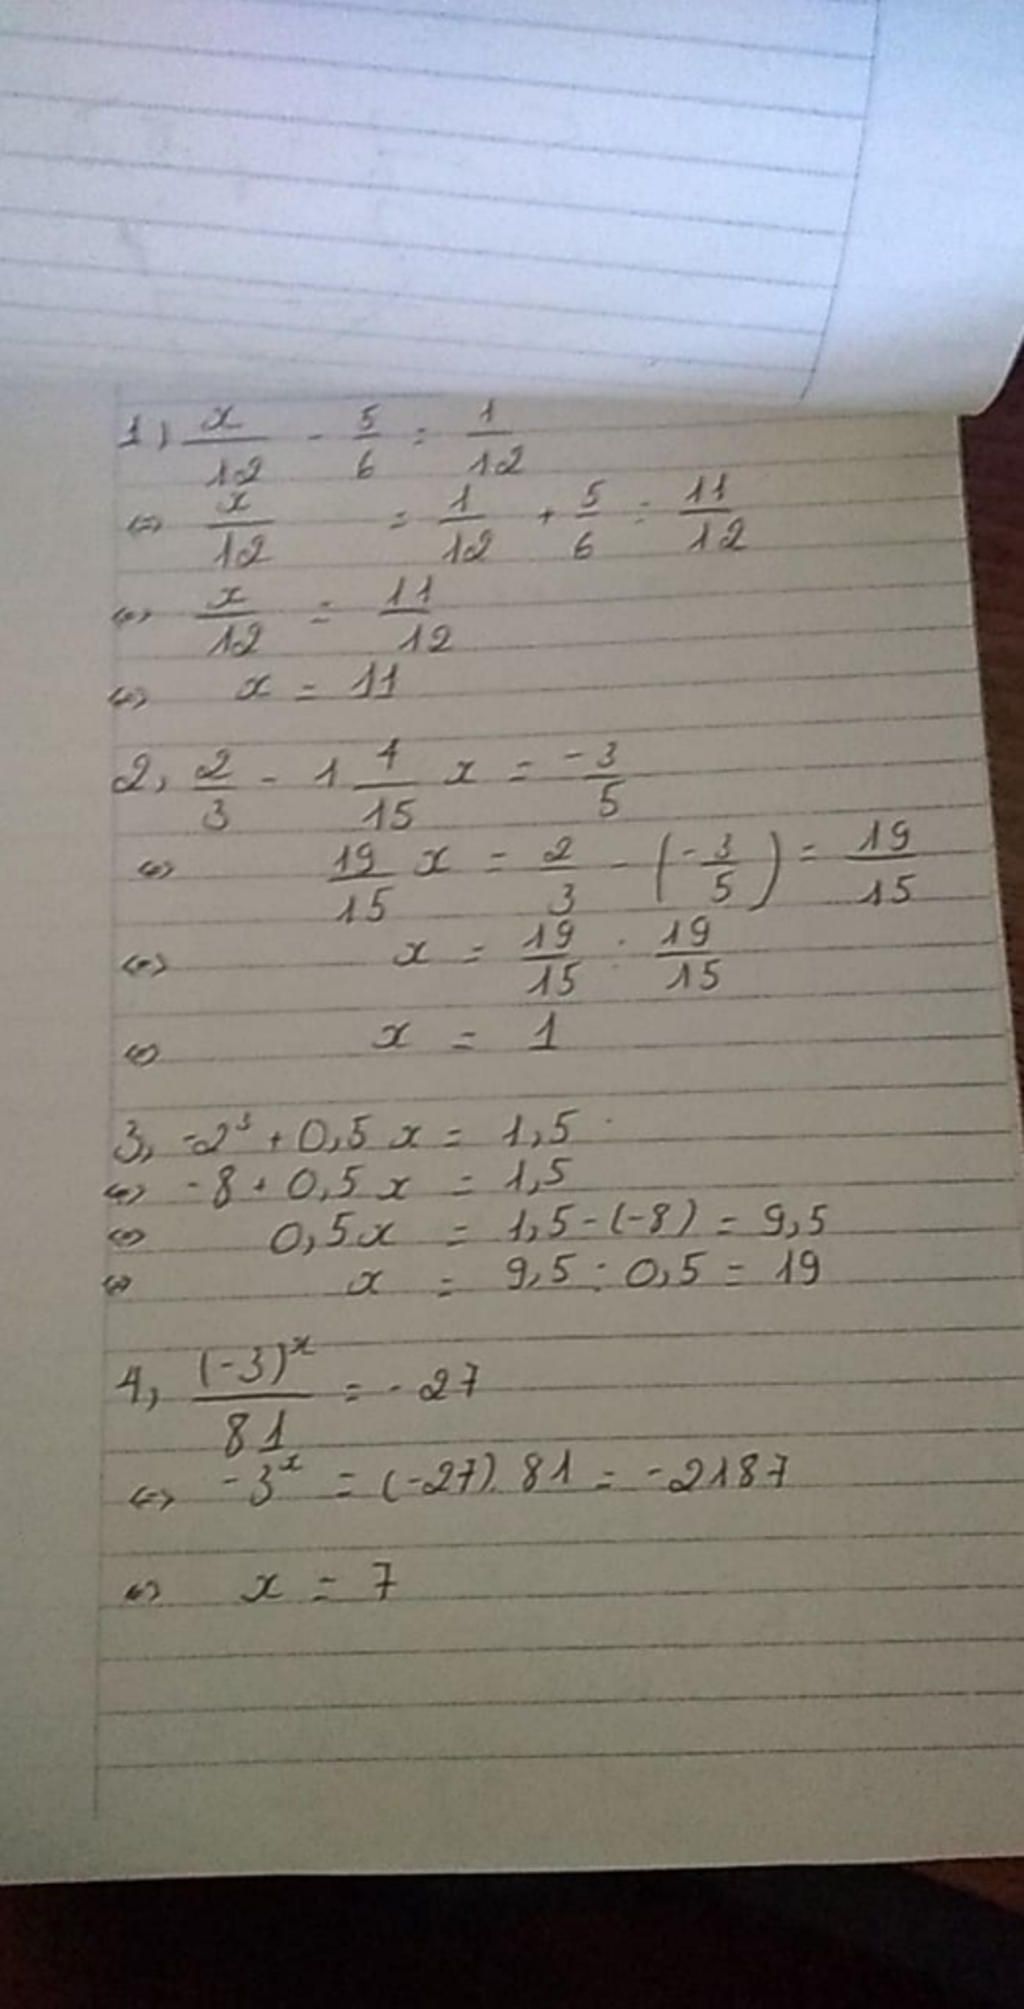 1) x/12 - 5/6 = 1/12
<=> x/12 = 1/12 + 5/6 = 11/12
<=> x/12 = 11/12
<=> x = 11
2, 2/3 - 1 4/15 x = -3/5
<=> 19/15 x = 2/3 - (-3/5) = 19/15
<=> x = 19/15 : 19/15
<=> x = 1
3, -2³ + 0,5x = 1,5
<=> -8 + 0,5x = 1,5
<=> 0,5x = 1,5 - (-8) = 9,5
<=> x = 9,5 : 0,5 = 19
4, (-3)^x/81 = -27
<=> -3^x = (-27).81 = -2187
<=> x = 7